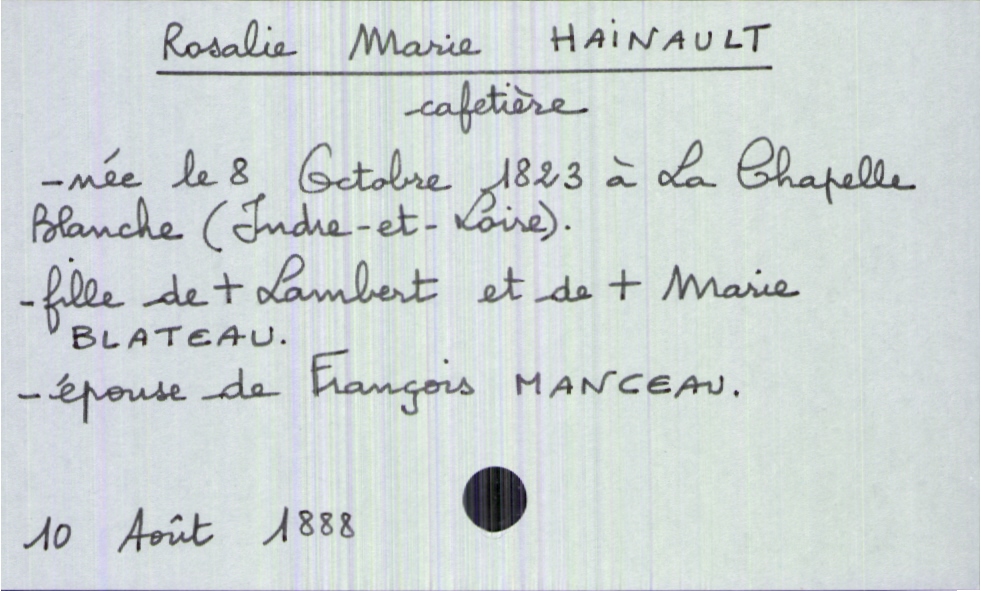 Rosalie Marie HAINAULT
cafetière
- née le 8 Octobre 1823 à La Chapelle
Blanche (Indre-et-Loire).
- fille de + Lambert et de + Marie
BLATEAU.
- épouse de François MANCEAU.
10 Août 1888